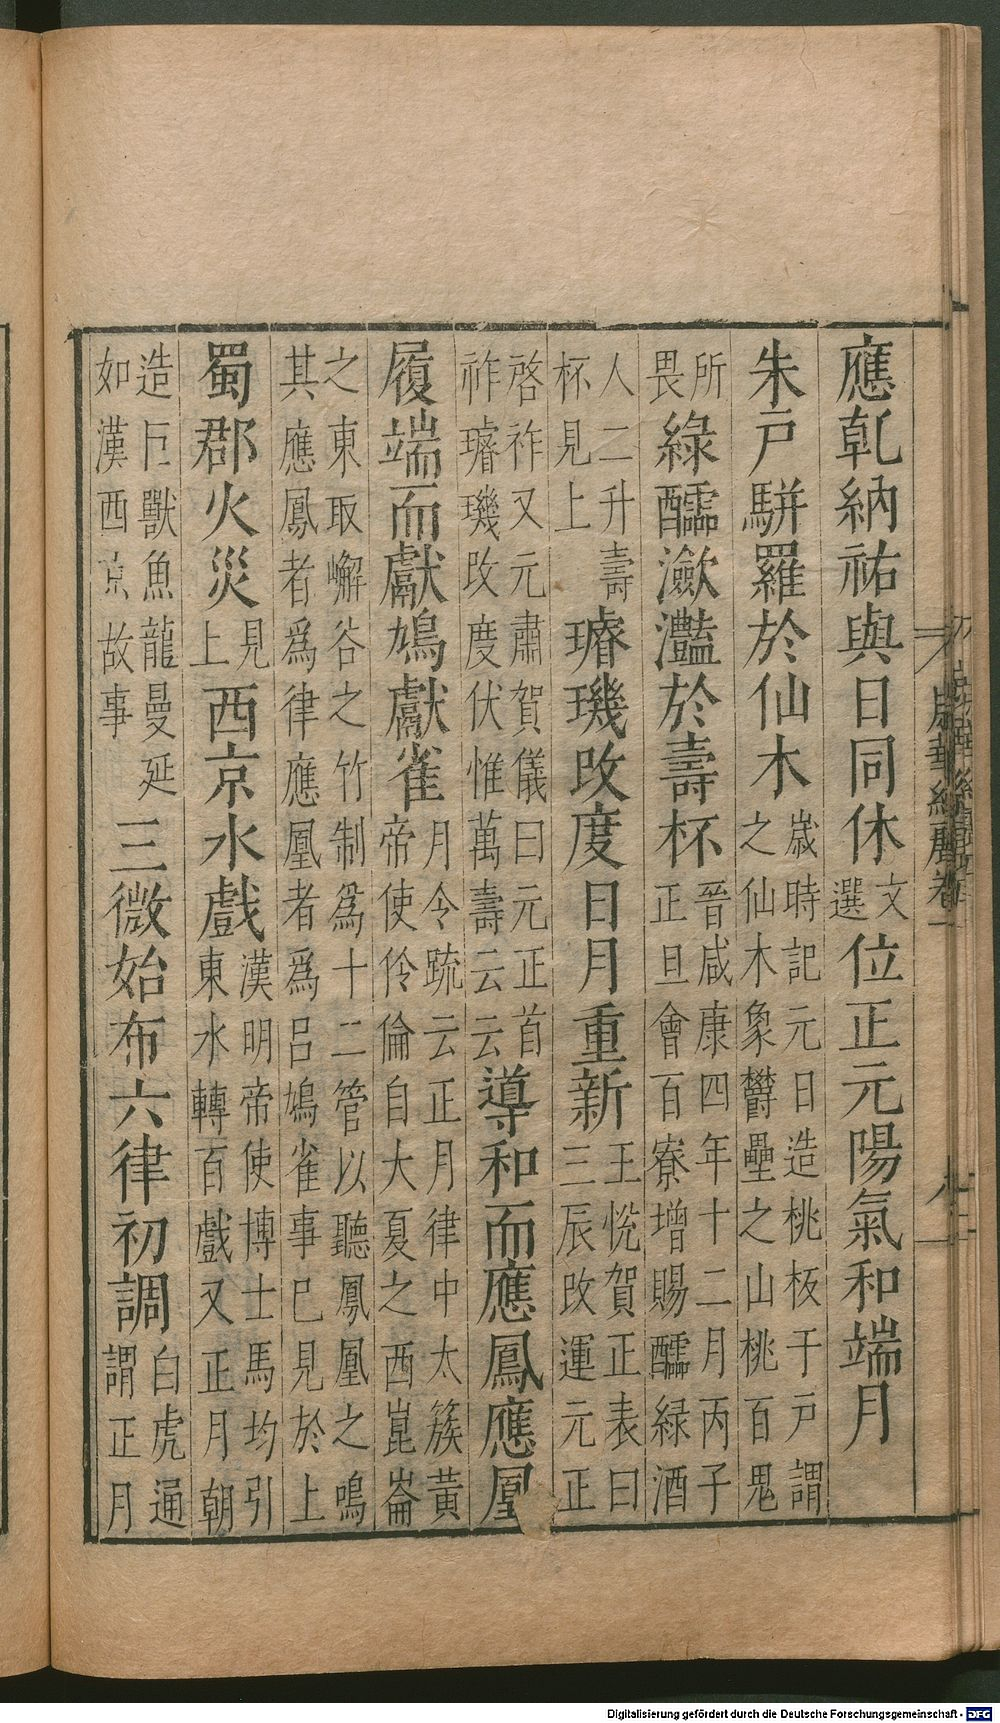 應乹納祐與日同休文選位正元陽氣和端月
朱戸駢羅於仙木歲時記元日造桃板于戸謂之仙木象欝壘之山桃百鬼
所畏綠醽瀲灩於壽杯晉咸康四年十二月丙子正旦會百寮增賜醽緑酒
人二升壽杯見上璿璣改度日月重新王恱賀正表曰三辰改運元正
啓祚又元肅賀儀曰元正首祚璿璣改度伏惟萬壽云云導和而應鳳應凰
履端而獻鳩獻雀月令䟽云正月律中太簇黃帝使伶倫自大夏之西崑崙
之東取嶰谷之竹制爲十二管以聽鳳凰之鳴其應鳳者爲律應凰者爲吕鳩雀事巳見於上
蜀郡火災見上西京水戲漢明帝使博士馬均引東水轉百戲又正月朝
造巨獸魚龍曼延如漢西京故事三微始布六律初調白虎通謂正月
Digitalisierung gefördert durch die Deutsche Forschungsgemeinschaft - DFG